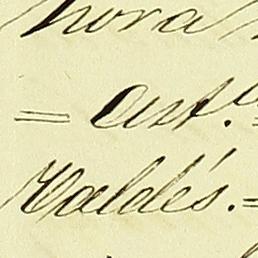 hora
= Ant.º
Valdés.=